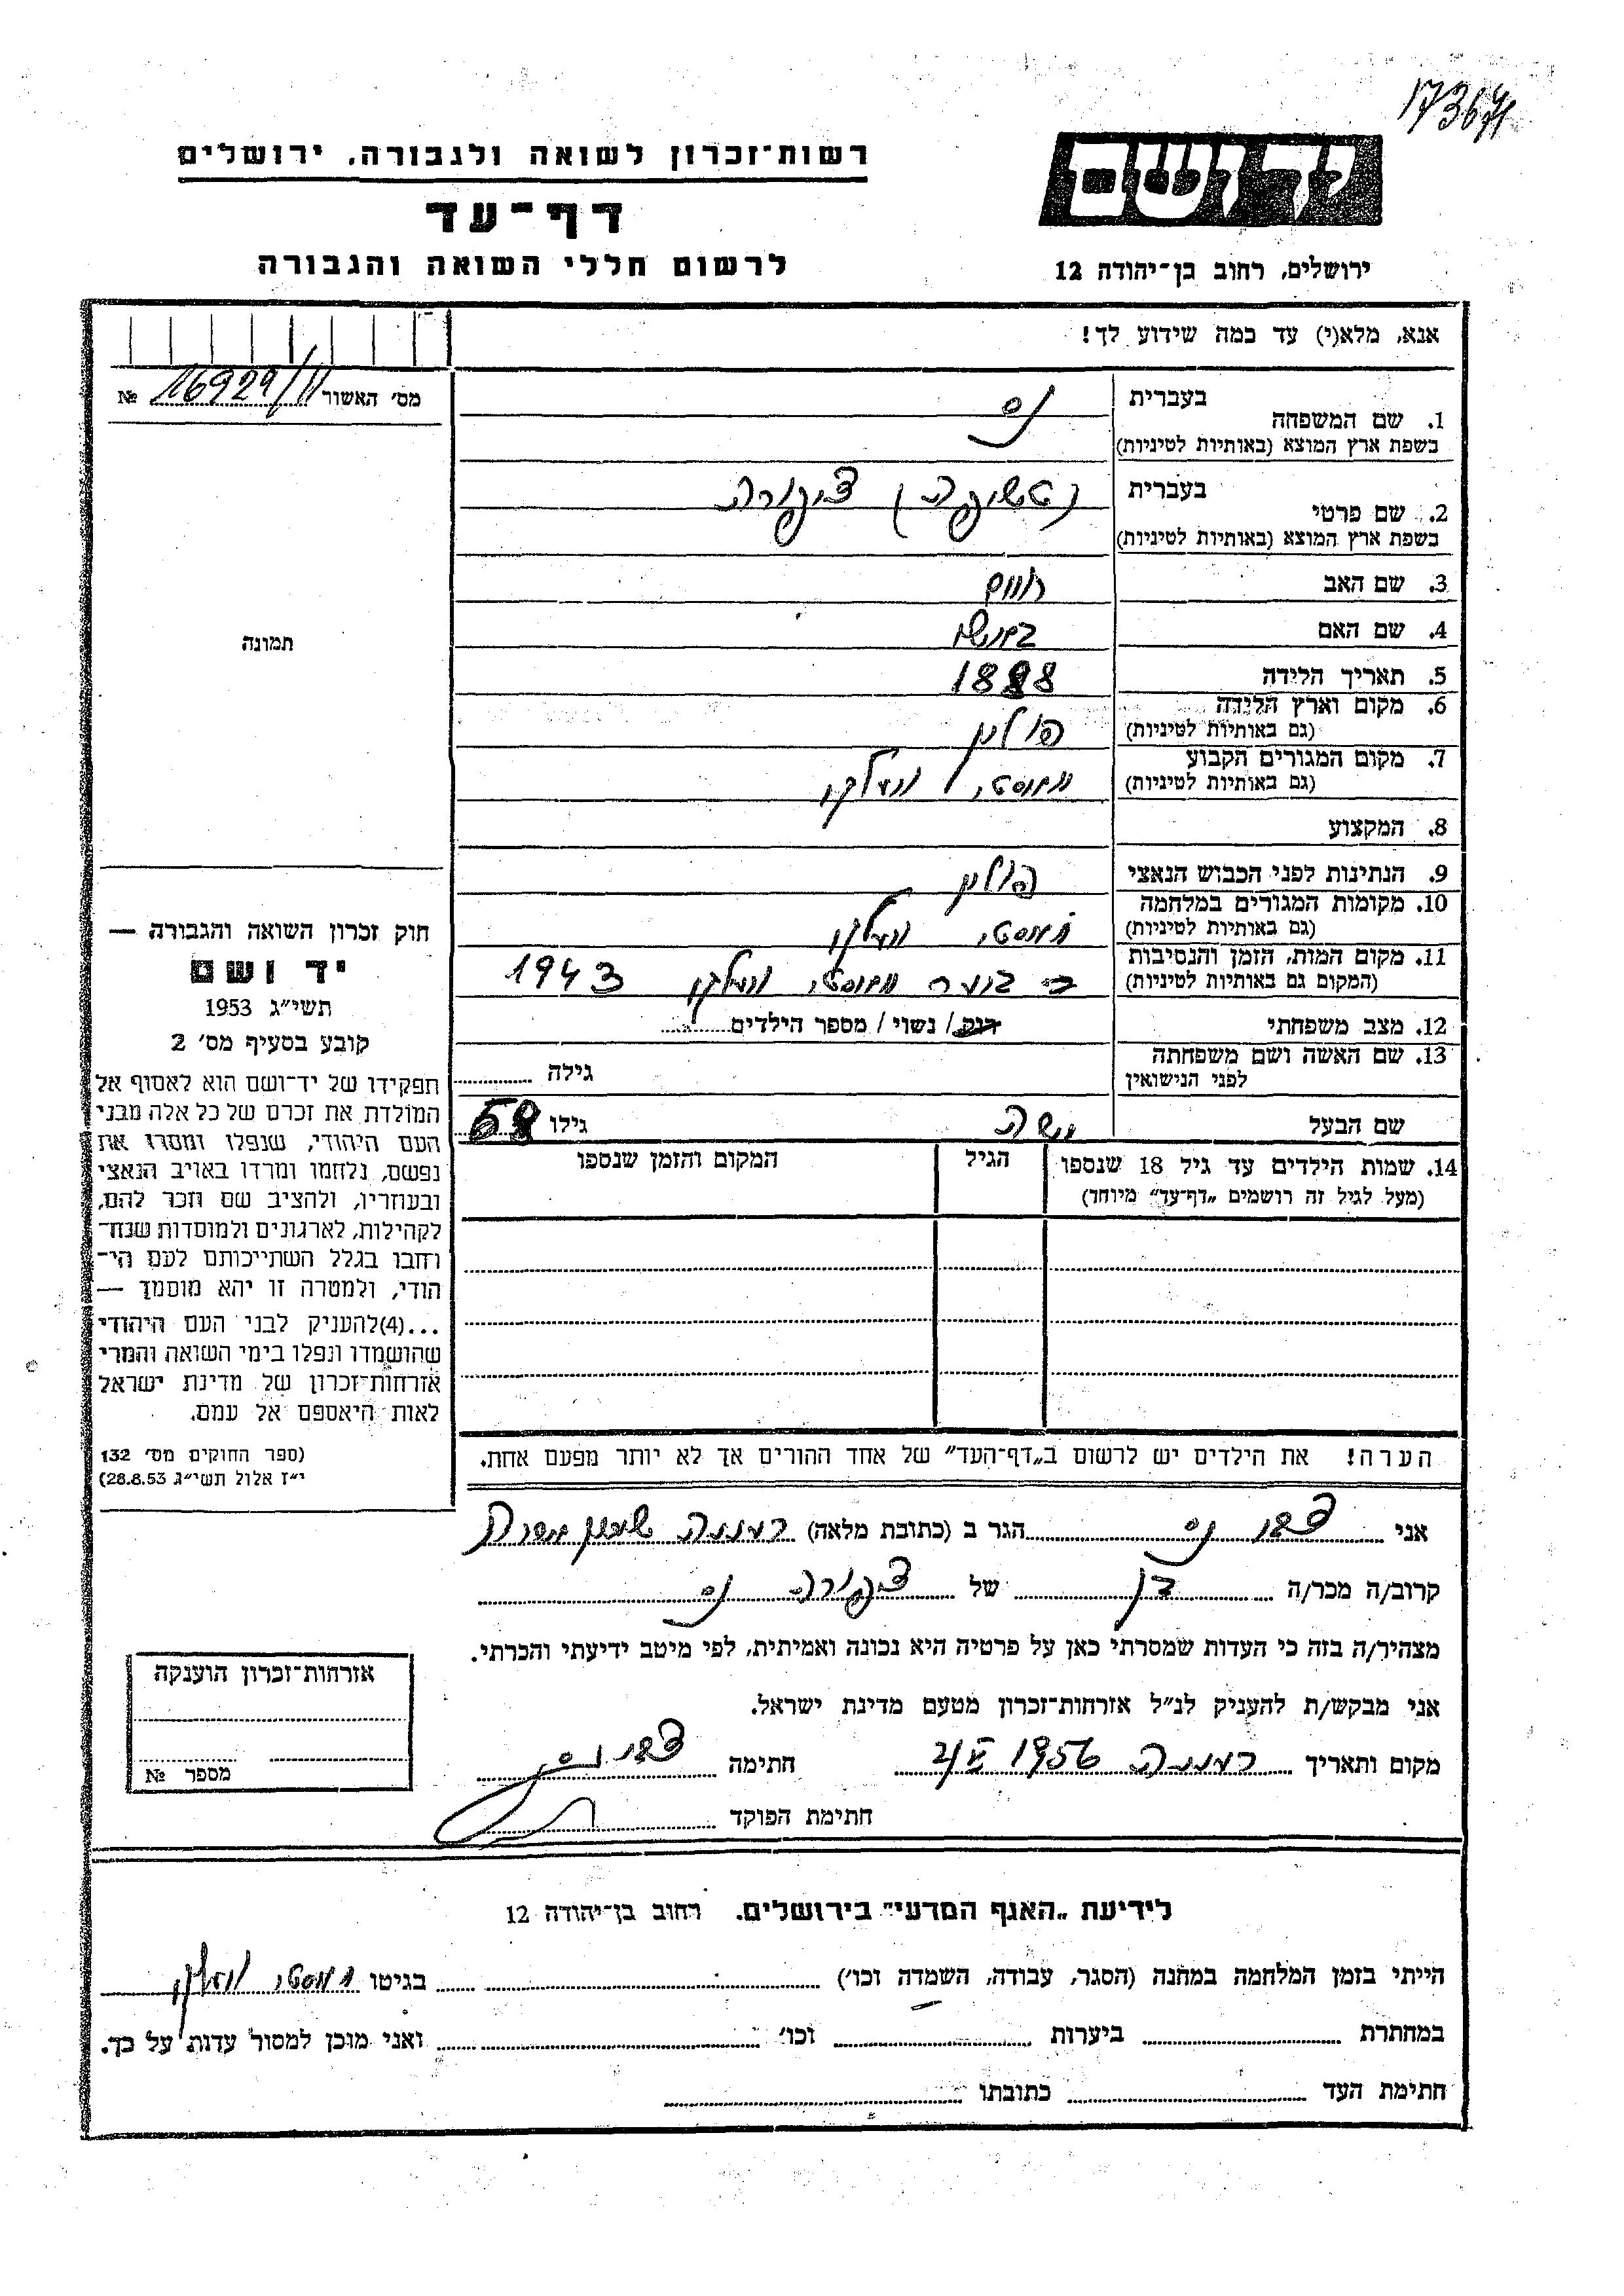 173671
רשות-זכרון לשואה ולגבורה, ירושלים
דף-עד
לרשום חללי השואה והגבורה
יד ושם
ירושלים, רחוב בן-יהודה 12
אנא, מלא(י) עד כמה שידוע לך!
מס' האשור 16929/11 №
תמונה
חוק זכרון השואה והגבורה —
יד ושם
תשי״ג 1953
קובע בסעיף מס' 2
תפקידו של יד-ושם הוא לאסוף אל
המולדת את זכרם של כל אלה מבני
העם היהודי, שנפלו ומסרו את
נפשם, נלחמו ומרדו באויב הנאצי
ובעוזריו, ולהציב שם וזכר להם,
לקהילות, לארגונים ולמוסדות שנח-
רחבו בגלל השתייכותם לעם הי-
הודי, ולמטרה זו יהא מוסמך —
...(4)להעניק לבני העם היהודי
שהושמדו ונפלו בימי השואה והמרי
אזרחות-זכרון של מדינת ישראל
לאות היאספם אל עמם.
(ספר החוקים מס' 132
י״ז אלול תשי״ג 28.8.53)
1. שם המשפחה בעברית נס
בשפת ארץ המוצא (באותיות לטיניות)
2. שם פרטי בעברית ציפורה
בשפת ארץ המוצא (באותיות לטיניות)
3. שם האב חיים
4. שם האם
5. תאריך הלידה 1888
6. מקום וארץ הלידה פולין
(גם באותיות לטיניות)
7. מקום המגורים הקבוע
(גם באותיות לטיניות)
8. המקצוע
9. הנתינות לפני הכבוש הנאצי פולין
10. מקומות המגורים במלחמה
(גם באותיות לטיניות)
11. מקום המות, הזמן והנסיבות 1943
(המקום גם באותיות לטיניות)
12. מצב משפחתי רווק / נשוי / מספר הילדים
13. שם האשה ושם משפחתה גילה
לפני הנישואין
שם הבעל משה גילו 58
14. שמות הילדים עד גיל 18 שנספו הגיל המקום והזמן שנספו
(מעל לגיל זה רושמים „דף-עד״ מיוחד)
הערה! את הילדים יש לרשום ב„דף-העד״ של אחד ההורים אך לא יותר מפעם אחת.
אני צבי נס הגר ב (כתובת מלאה) רעננה
קרוב/ה מכר/ה בן של ציפורה נס
מצהיר/ה בזה כי העדות שמסרתי כאן על פרטיה היא נכונה ואמיתית, לפי מיטב ידיעתי והכרתי.
אני מבקש/ת להעניק לנ״ל אזרחות-זכרון מטעם מדינת ישראל.
מקום ותאריך רעננה 1956 חתימה צבי נס
חתימת הפוקד
אזרחות-זכרון הוענקה
מספר №
לידיעת „האגף המדעי״ בירושלים, רחוב בן-יהודה 12
הייתי בזמן המלחמה במחנה (הסגר, עבודה, השמדה וכו') בגיטו
במחתרת ביערות וכו' ואני מוכן למסור עדות על כך.
חתימת העד כתובתו